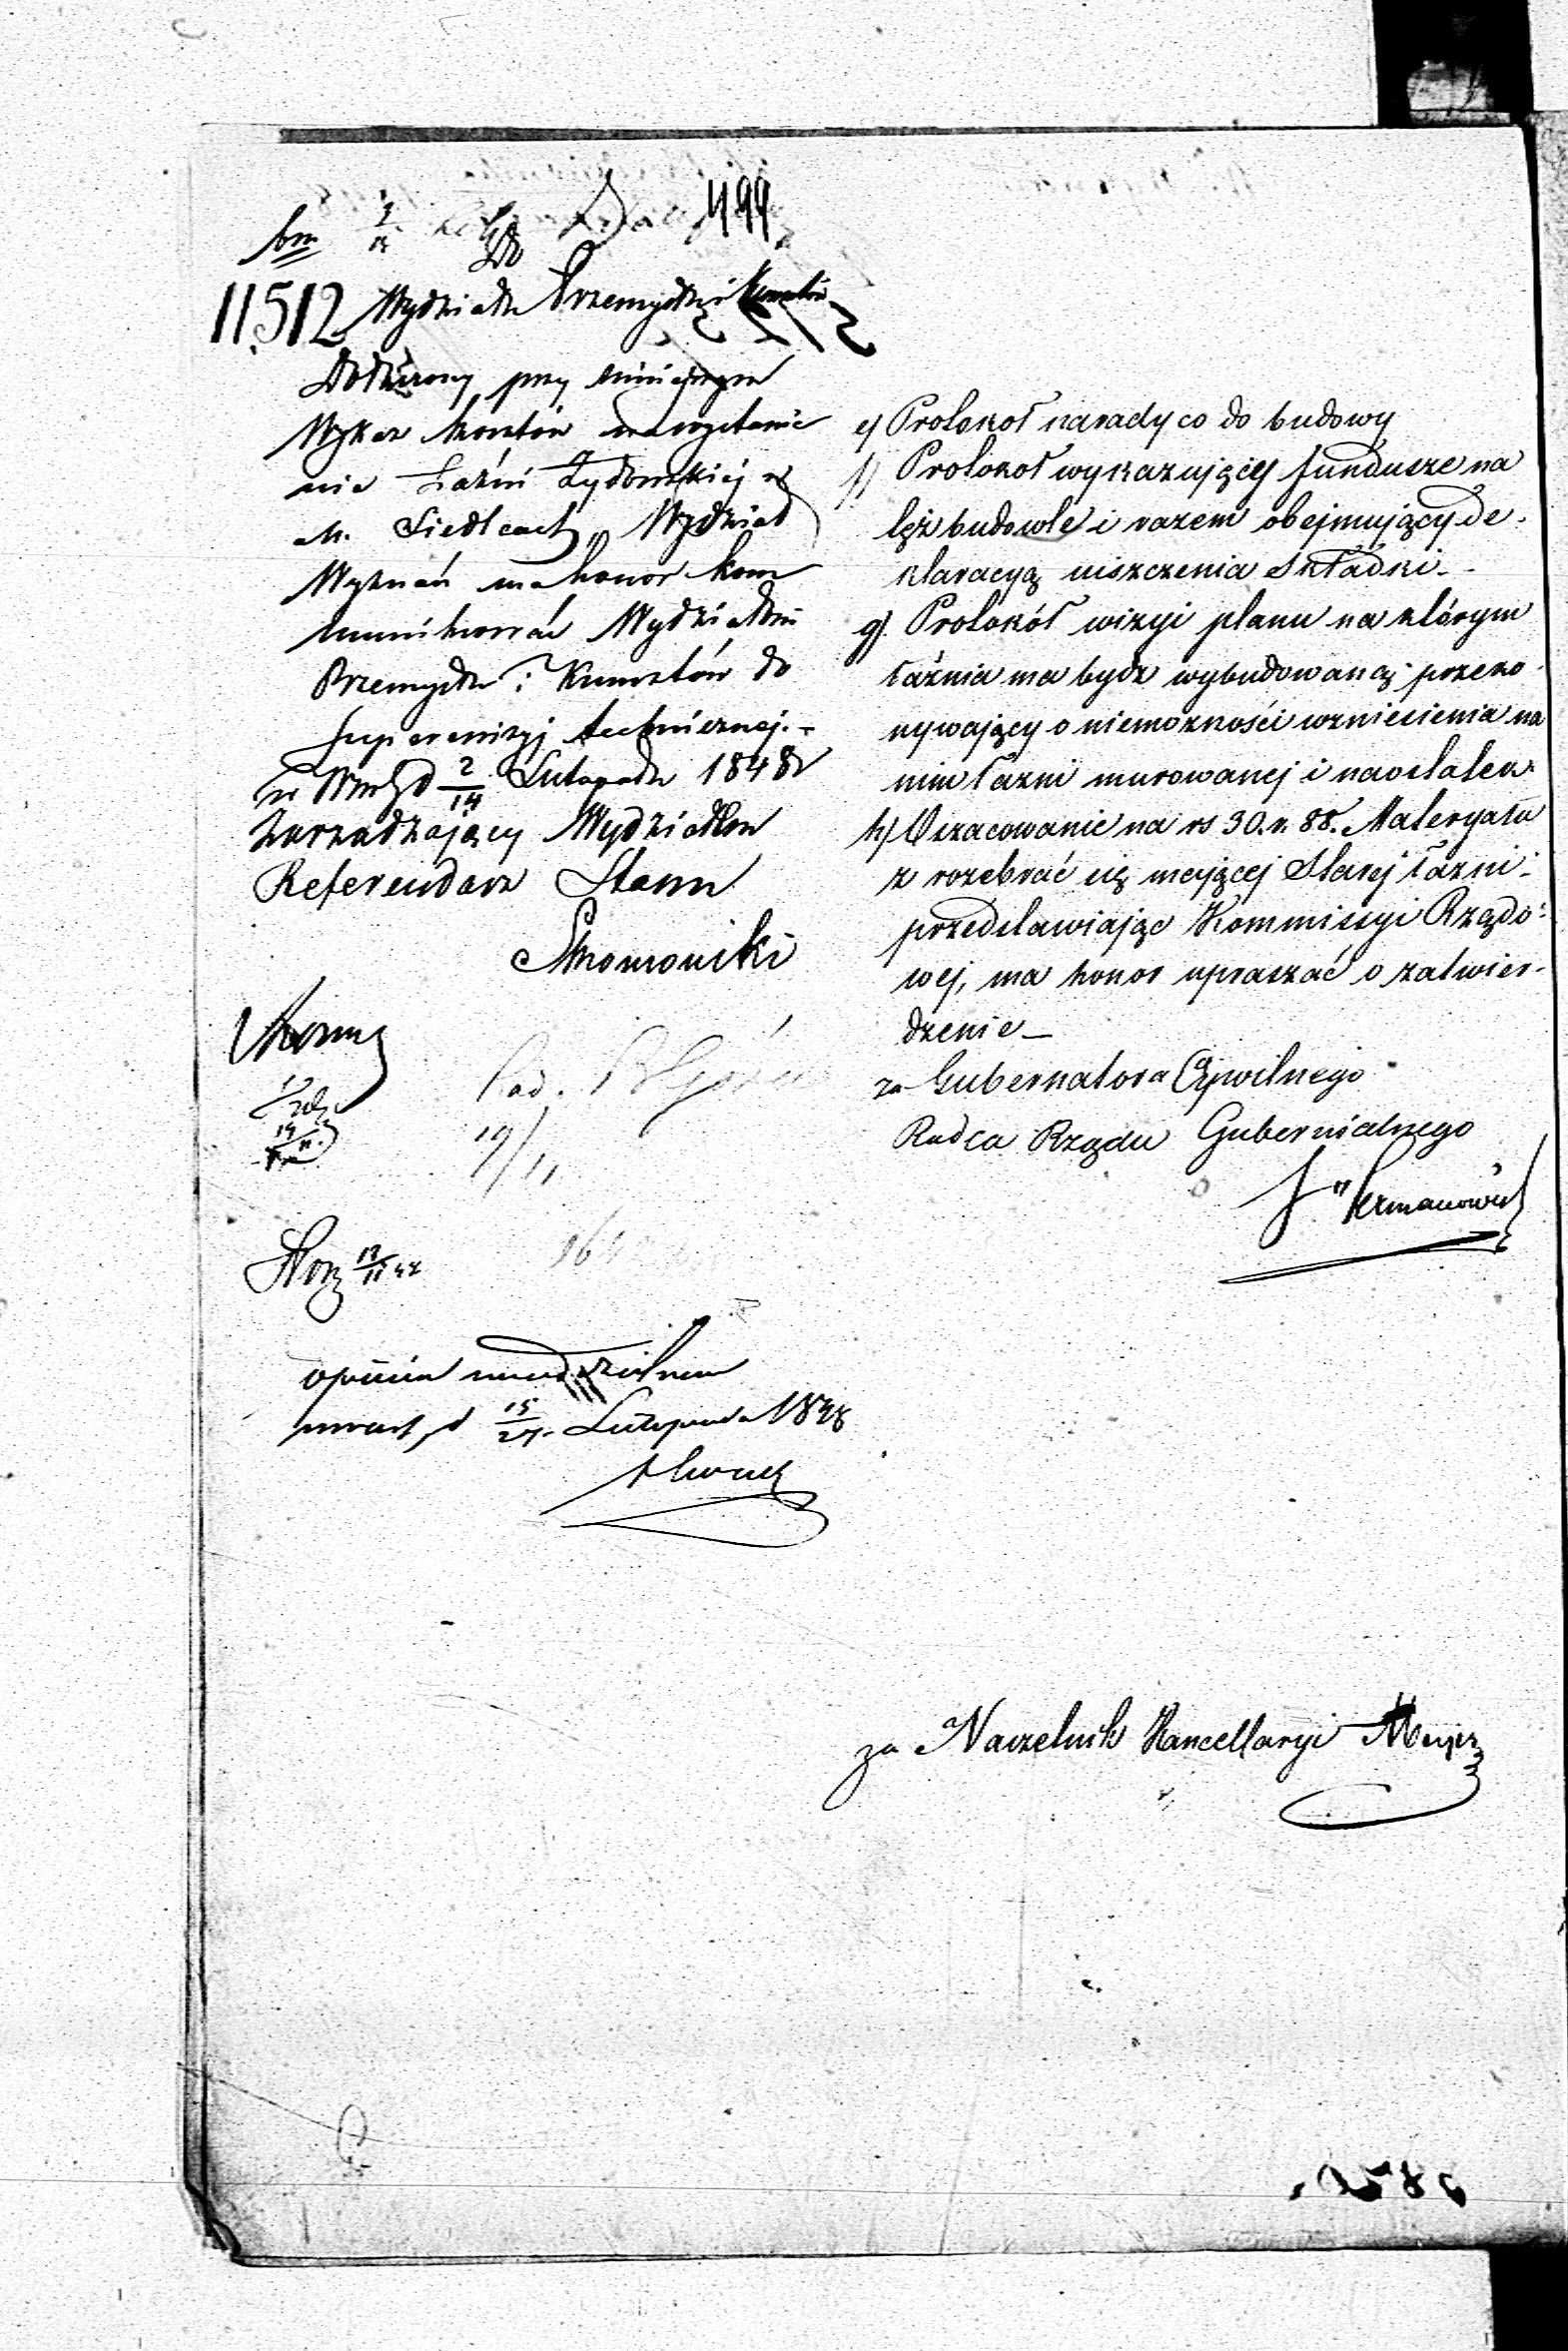 499
Do
11512 Wydziału Przemysłu i Kunsztów
Dołączony przy niniejszym
Wykaz kosztów na wystawie
nie Łaźni Żydowskiej w
m. Siedlcach, Wydział
Wyznań ma honor kom
munikować Wydziałowi
Przemysłu i Kunsztów do
superrewizyi technicznej.-
w d 2/14 Listopada 1848 r
Zarządzający Wydziałem
Referendarz Stanu
19/11
opinia
d 15/27 Listopada 1848
e) Protokoł narady co do budowy
f) Protokoł wykazujący fundusze na
tęż budowle i razem obejmujący de-
klaracyą uiszczenia Składki.-
g) Protokół wizyi planu na którym
łaźnia ma bydz wybudowaną; przeko-
nywający o niemożności wzniesienia na
nim łaźni murowanej i naostatek
h) Oszacowanie na rs 30. k. 88. Materyału
z rozebrać się mającej Starej łaźni;
przedstawiając Kommissyi Rządo-
wej, ma honor upraszać o zatwier-
dzenie_
za Gubernatora Cywilnego
Radca Rządu Gubernialnego
za Naczelnik Kancellaryi